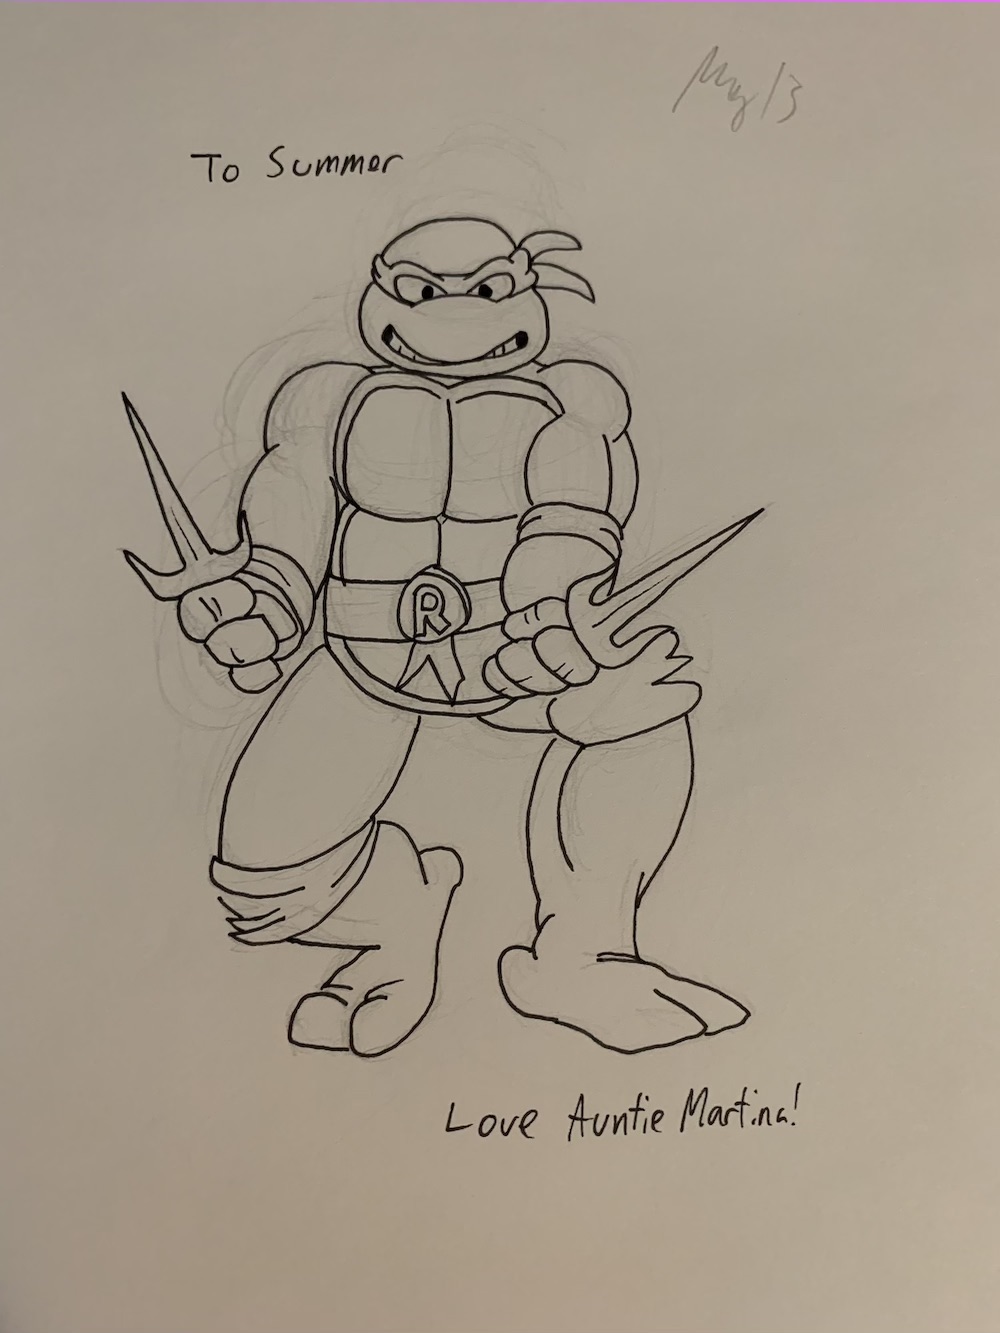 May 13
To Summer
R
Love Auntie Martina!